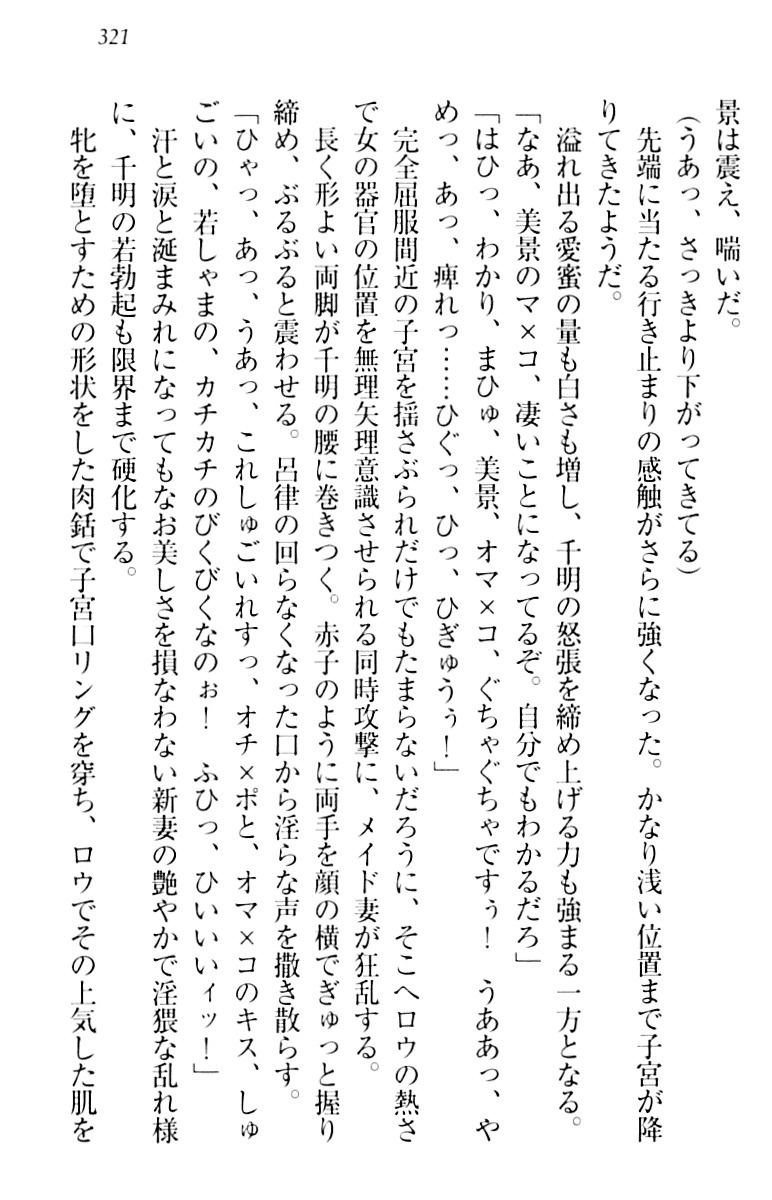 321
景は震え、喘いだ。
(うあっ、さっきより下がってきてる)
先端に当たる行き止まりの感触がさらに強くなった。かなり浅い位置まで子宮が降
りてきたようだ。
溢れ出る愛蜜の量も白さも増し、千明の怒張を締め上げる力も強まる一方となる。
「なあ、美景のマ×コ、凄いことになってるぞ。自分でもわかるだろ」
「はひっ、わかり、まひゅ、美景、オマ×コ、ぐちゃぐちゃですぅ！　うああっ、や
めっ、あっ、痺れっ……ひぐっ、ひっ、ひぎゅうぅ！」
完全屈服間近の子宮を揺さぶられだけでもたまらないだろうに、そこへロウの熱さ
で女の器官の位置を無理矢理意識させられる同時攻撃に、メイド妻が狂乱する。
長く形よい両脚が千明の腰に巻きつく。赤子のように両手を顔の横でぎゅっと握り
締め、ぶるぶると震わせる。呂律の回らなくなった口から淫らな声を撒き散らす。
「ひゃっ、あっ、うあっ、これしゅごいれすっ、オチ×ポと、オマ×コのキス、しゅ
ごいの、若しゃまの、カチカチのびくびくなのぉ！　ふひっ、ひいいいィッ！」
汗と涙と涎まみれになってもなお美しさを損なわない新妻の艶やかで淫猥な乱れ様
に、千明の若勃起も限界まで硬化する。
牝を堕とすための形状をした肉銛で子宮口リングを穿ち、ロウでその上気した肌を